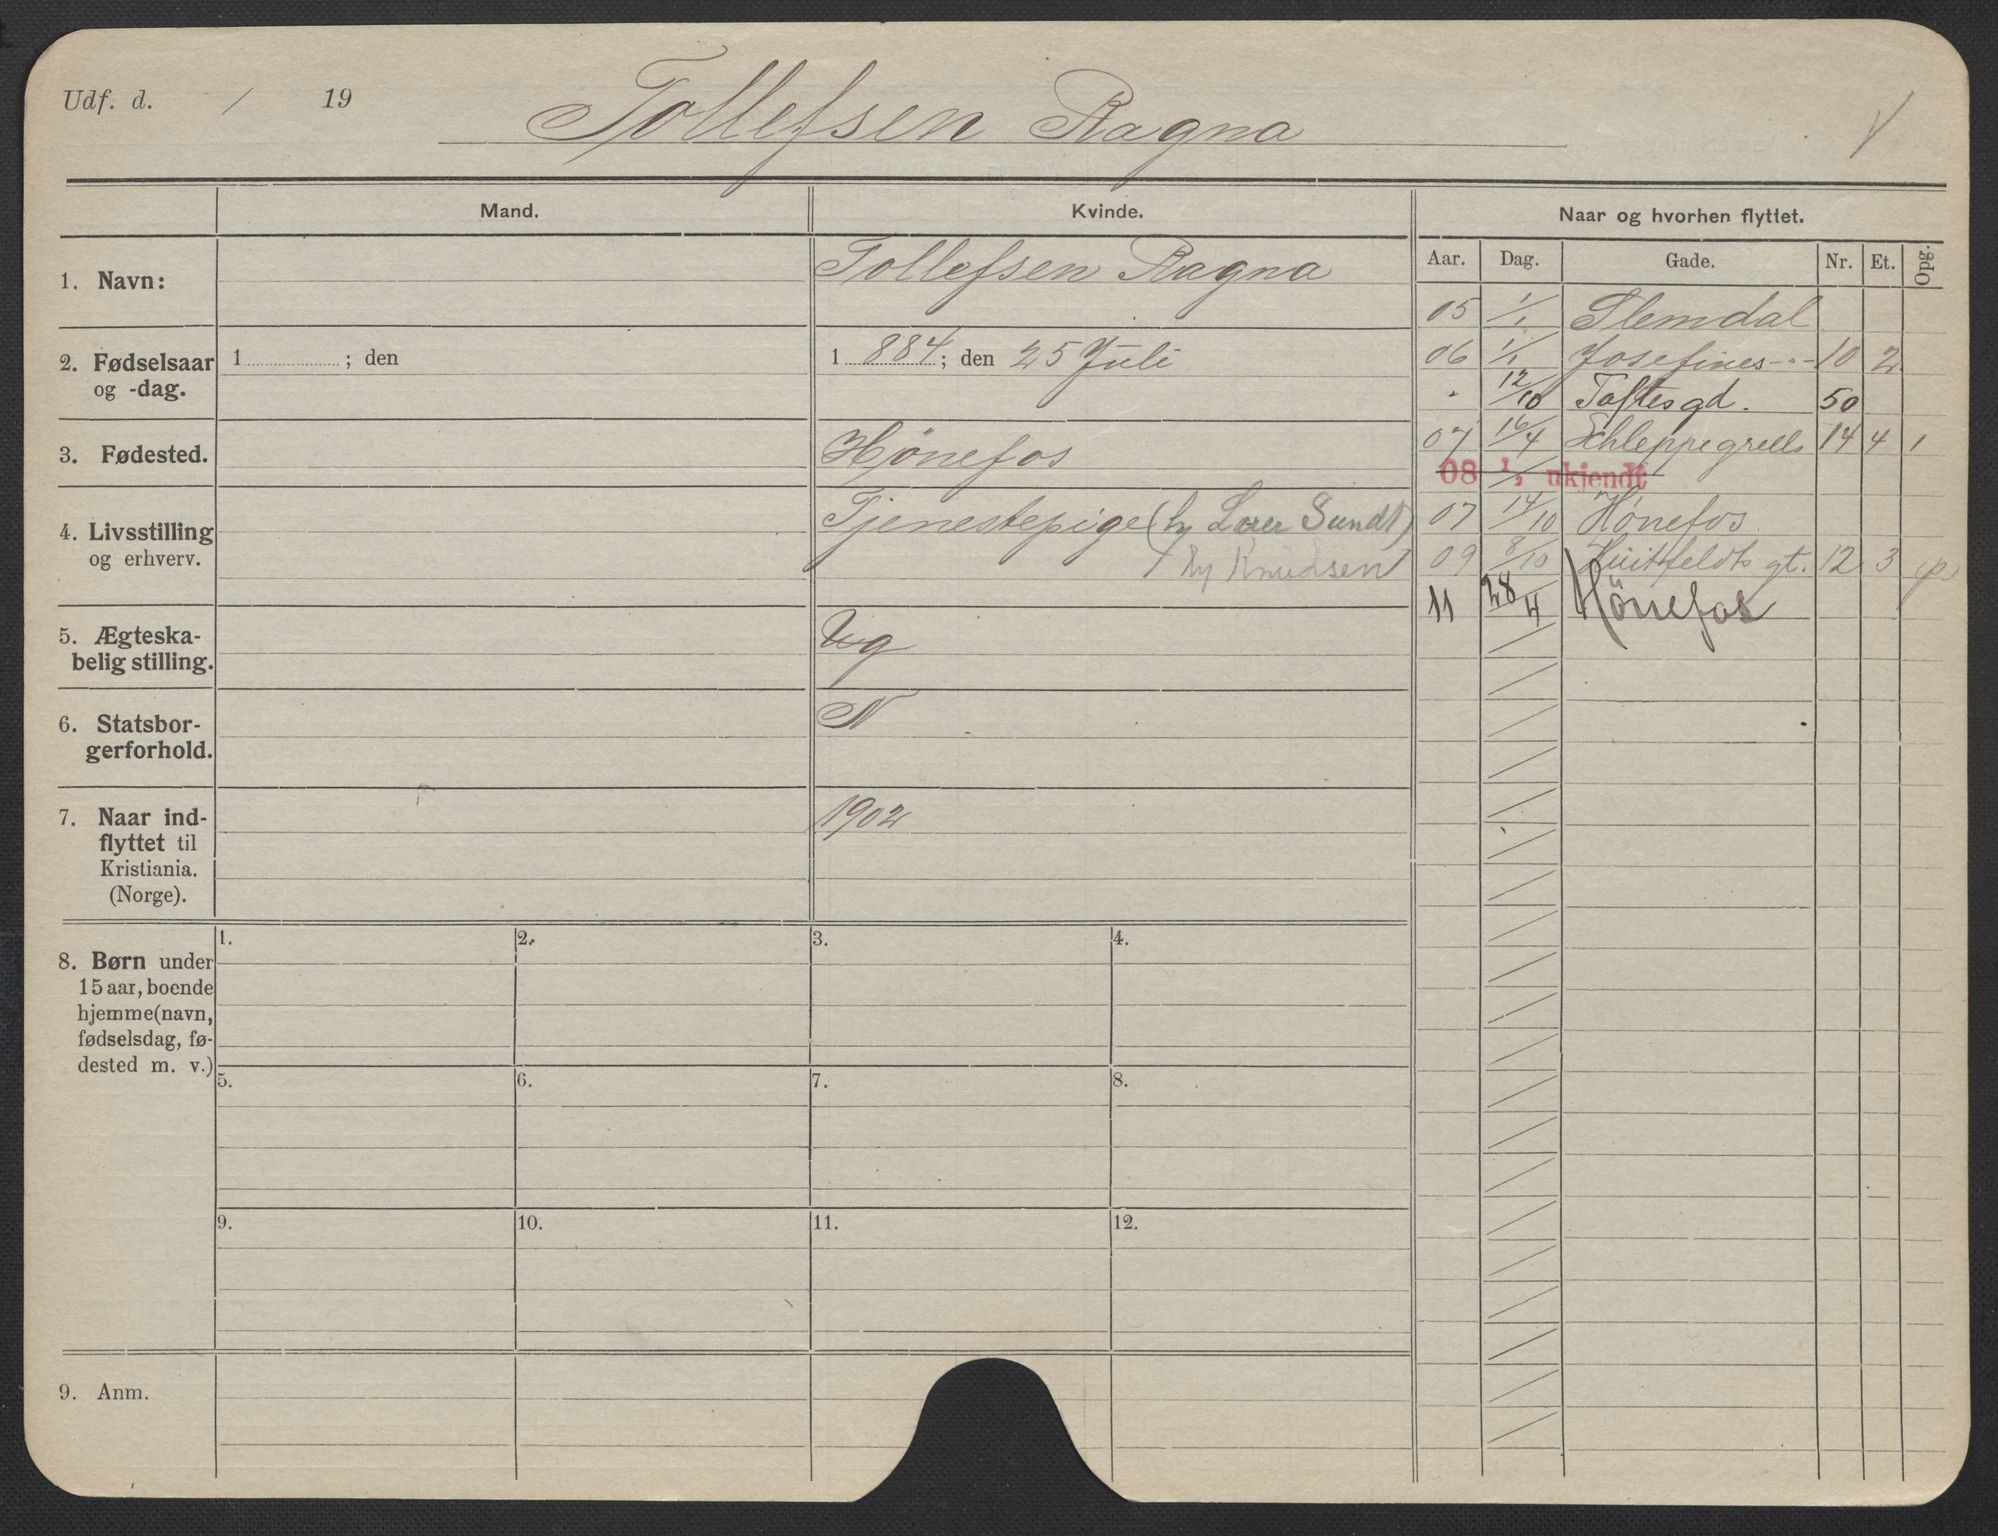 Udf. d. / 19
Tollefsen Ragna
Mand.
Kvinde.
Naar og hvorhen flyttet.
Aar. Dag. Gade. Nr. Et. Opg.
1. Navn:
Tollefsen Ragna
2. Fødselsaar
og -dag.
1 ; den
1 884 ; den 25 Juli
3. Fødested.
Hønefos
4. Livsstilling
og erhverv.
Tjenestepige (hj Sundt)
hj Knudsen
5. Ægteska-
belig stilling.
Ug
6. Statsbor-
gerforhold.
N
7. Naar ind-
flyttet til
Kristiania.
(Norge).
1902
05 1/1 Slemdal
06 1/1 Josefines-"- 10 2
" 12/10 Toftesgd. 50
07 16/4 Schleppegrells 14 4 1
08 1/1 ukjendt
07 14/10 Hønefos
09 8/10 Huitfeldts gt. 12 3
11 28/4 Hönefos
8. Børn under
15 aar, boende
hjemme (navn,
fødselsdag, fø-
dested m. v.)
1. 2. 3. 4.
5. 6. 7. 8.
9. 10. 11. 12.
9. Anm.